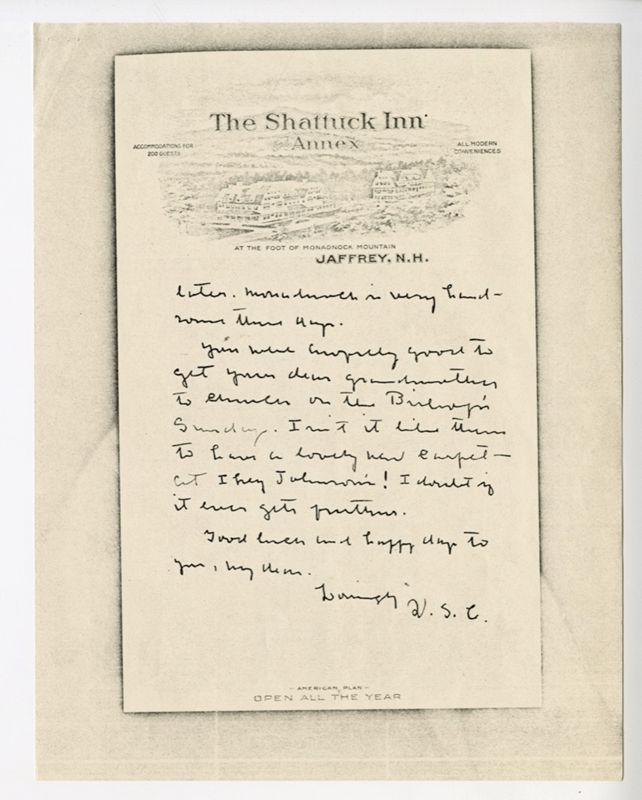 The Shattuck Inn
Annex
ACCOMMODATIONS FOR
200 GUESTS
ALL MODERN
CONVENIENCES
AT THE FOOT OF MONADNOCK MOUNTAIN
JAFFREY, N.H.
later. Monadnock is very hand-
some these days.
You were awfully good to
get your dear grandmother
to church on the Bishop's
Sunday. Isn't it like them
to have a lovely new carpet
at Johnson's! I doubt if
it ever gets
Good luck and happy days to
you, my dear.
Lovingly
W. S. C.
- AMERICAN PLAN -
OPEN ALL THE YEAR